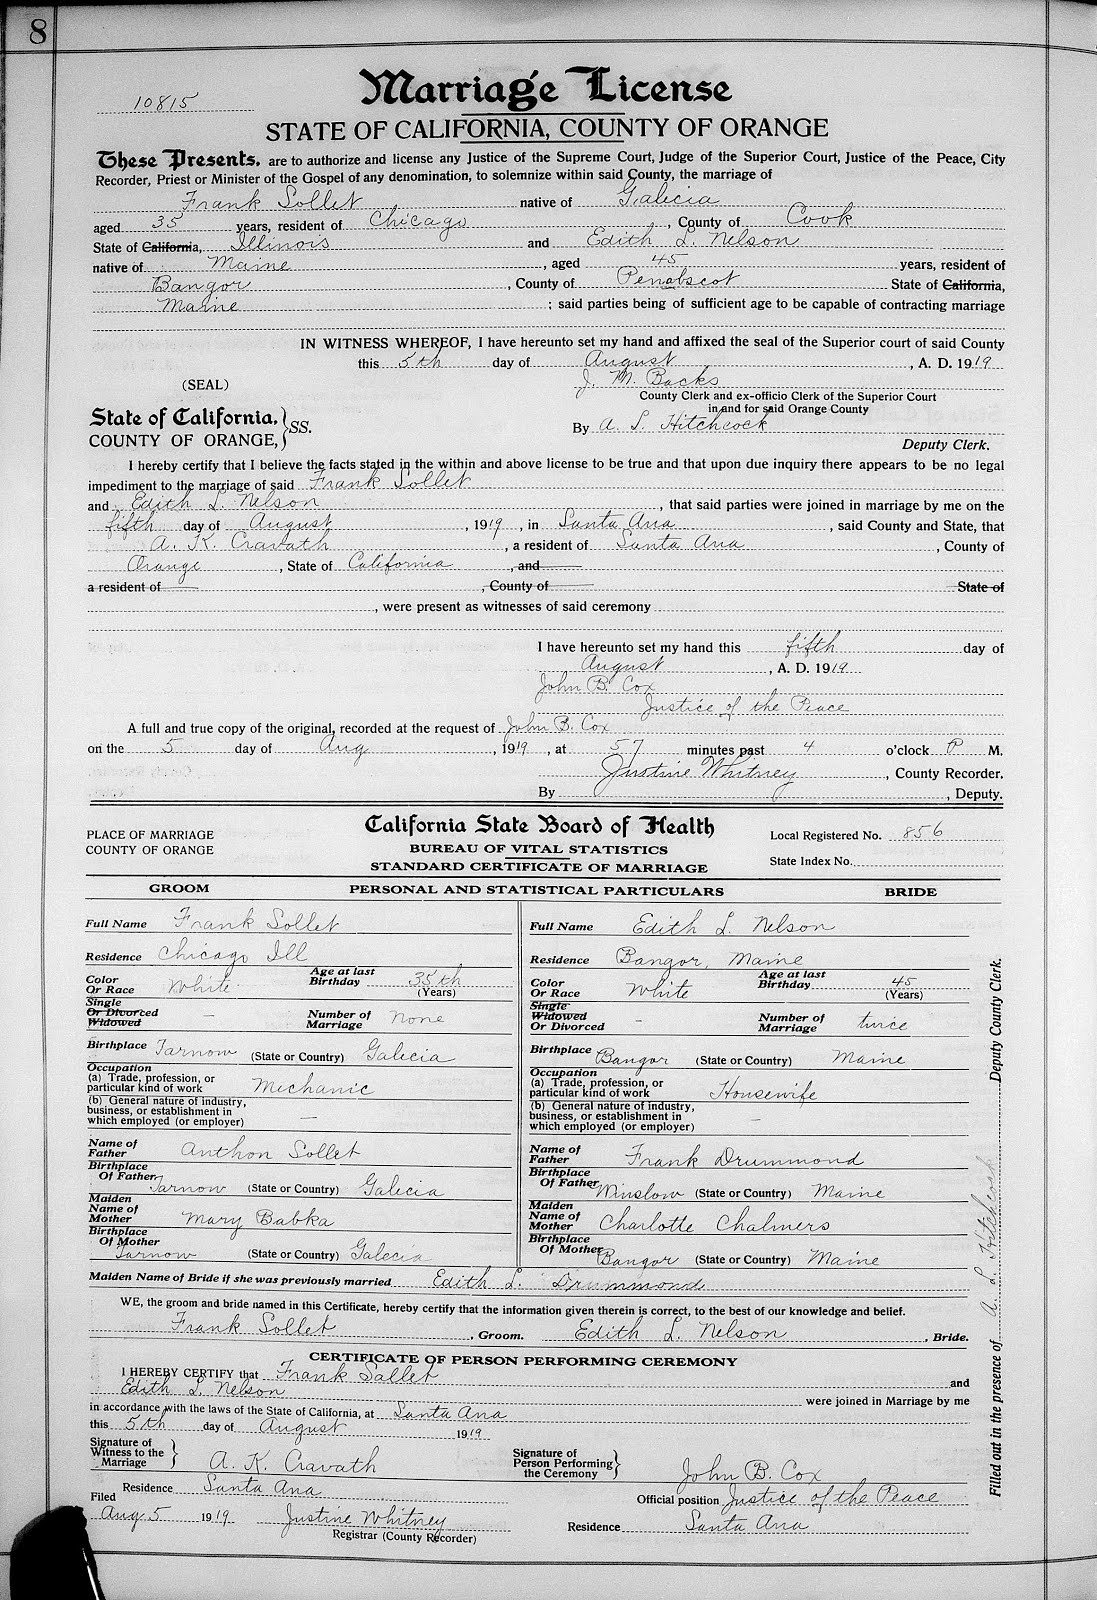 8
10815
Marriage License
STATE OF CALIFORNIA, COUNTY OF ORANGE
These Presents, are to authorize and license any Justice of the Supreme Court, Judge of the Superior Court, Justice of the Peace, City
Recorder, Priest or Minister of the Gospel of any denomination, to solemnize within said County, the marriage of
Frank Sollet native of Galecia
aged 35 years, resident of Chicago, County of Cook
State of California, Illinois and Edith L. Nelson
native of Maine, aged 45 years, resident of
Bangor, County of Penabscot State of California,
Maine; said parties being of sufficient age to be capable of contracting marriage
IN WITNESS WHEREOF, I have hereunto set my hand and affixed the seal of the Superior court of said County
this 5th day of August, A. D. 1919
(SEAL) J. M. Backs
County Clerk and ex-officio Clerk of the Superior Court
in and for said Orange County
State of California,
COUNTY OF ORANGE, } SS. By A. L. Hitchcock
Deputy Clerk.
I hereby certify that I believe the facts stated in the within and above license to be true and that upon due inquiry there appears to be no legal
impediment to the marriage of said Frank Sollet
and Edith L. Nelson, that said parties were joined in marriage by me on the
fifth day of August, 1919, in Santa Ana, said County and State, that
A. K. Cravath, a resident of Santa Ana, County of
Orange, State of California, and
a resident of, County of State of
, were present as witnesses of said ceremony
I have hereunto set my hand this fifth day of
August, A. D. 1919
John B. Cox
Justice of the Peace
A full and true copy of the original, recorded at the request of John B. Cox
on the 5 day of Aug, 1919, at 57 minutes past 4 o'clock P M.
Justine Whitney, County Recorder.
By, Deputy.
PLACE OF MARRIAGE
COUNTY OF ORANGE
California State Board of Health
BUREAU OF VITAL STATISTICS
STANDARD CERTIFICATE OF MARRIAGE
Local Registered No. 856
State Index No.
GROOM PERSONAL AND STATISTICAL PARTICULARS BRIDE
Full Name Frank Sollet
Residence Chicago Ill
Color Or Race White Age at last Birthday 35th (Years)
Single Or Divorced Widowed — Number of Marriage None
Birthplace Tarnow (State or Country) Galecia
Occupation
(a) Trade, profession, or
particular kind of work Mechanic
(b) General nature of industry,
business, or establishment in
which employed (or employer) —
Name of Father Anthon Sollet
Birthplace Of Father Tarnow (State or Country) Galecia
Maiden Name of Mother Mary Babka
Birthplace Of Mother Tarnow (State or Country) Galecia
Full Name Edith L. Nelson
Residence Bangor, Maine
Color Or Race White Age at last Birthday 45 (Years)
Single Widowed Or Divorced - Number of Marriage twice
Birthplace Bangor (State or Country) Maine
Occupation
(a) Trade, profession, or
particular kind of work Housewife
(b) General nature of industry,
business, or establishment in
which employed (or employer) —
Name of Father Frank Drummond
Birthplace Of Father Winslow (State or Country) Maine
Maiden Name of Mother Charlotte Chalmers
Birthplace Of Mother Bangor (State or Country) Maine
Maiden Name of Bride if she was previously married Edith L. Drummond
WE, the groom and bride named in this Certificate, hereby certify that the information given therein is correct, to the best of our knowledge and belief.
Frank Sollet, Groom. Edith L. Nelson, Bride.
CERTIFICATE OF PERSON PERFORMING CEREMONY
I HEREBY CERTIFY that Frank Sallet and
Edith L. Nelson were joined in Marriage by me
in accordance with the laws of the State of California, at Santa Ana
this 5th day of August 1919
Signature of Witness to the Marriage } A. K. Cravath
Signature of Person Performing the Ceremony } John B. Cox
Residence Santa Ana
Official position Justice of the Peace
Filed Aug. 5 1919 Justine Whitney
Registrar (County Recorder)
Residence Santa Ana
Filled out in the presence of A. L. Hitchcock Deputy County Clerk.